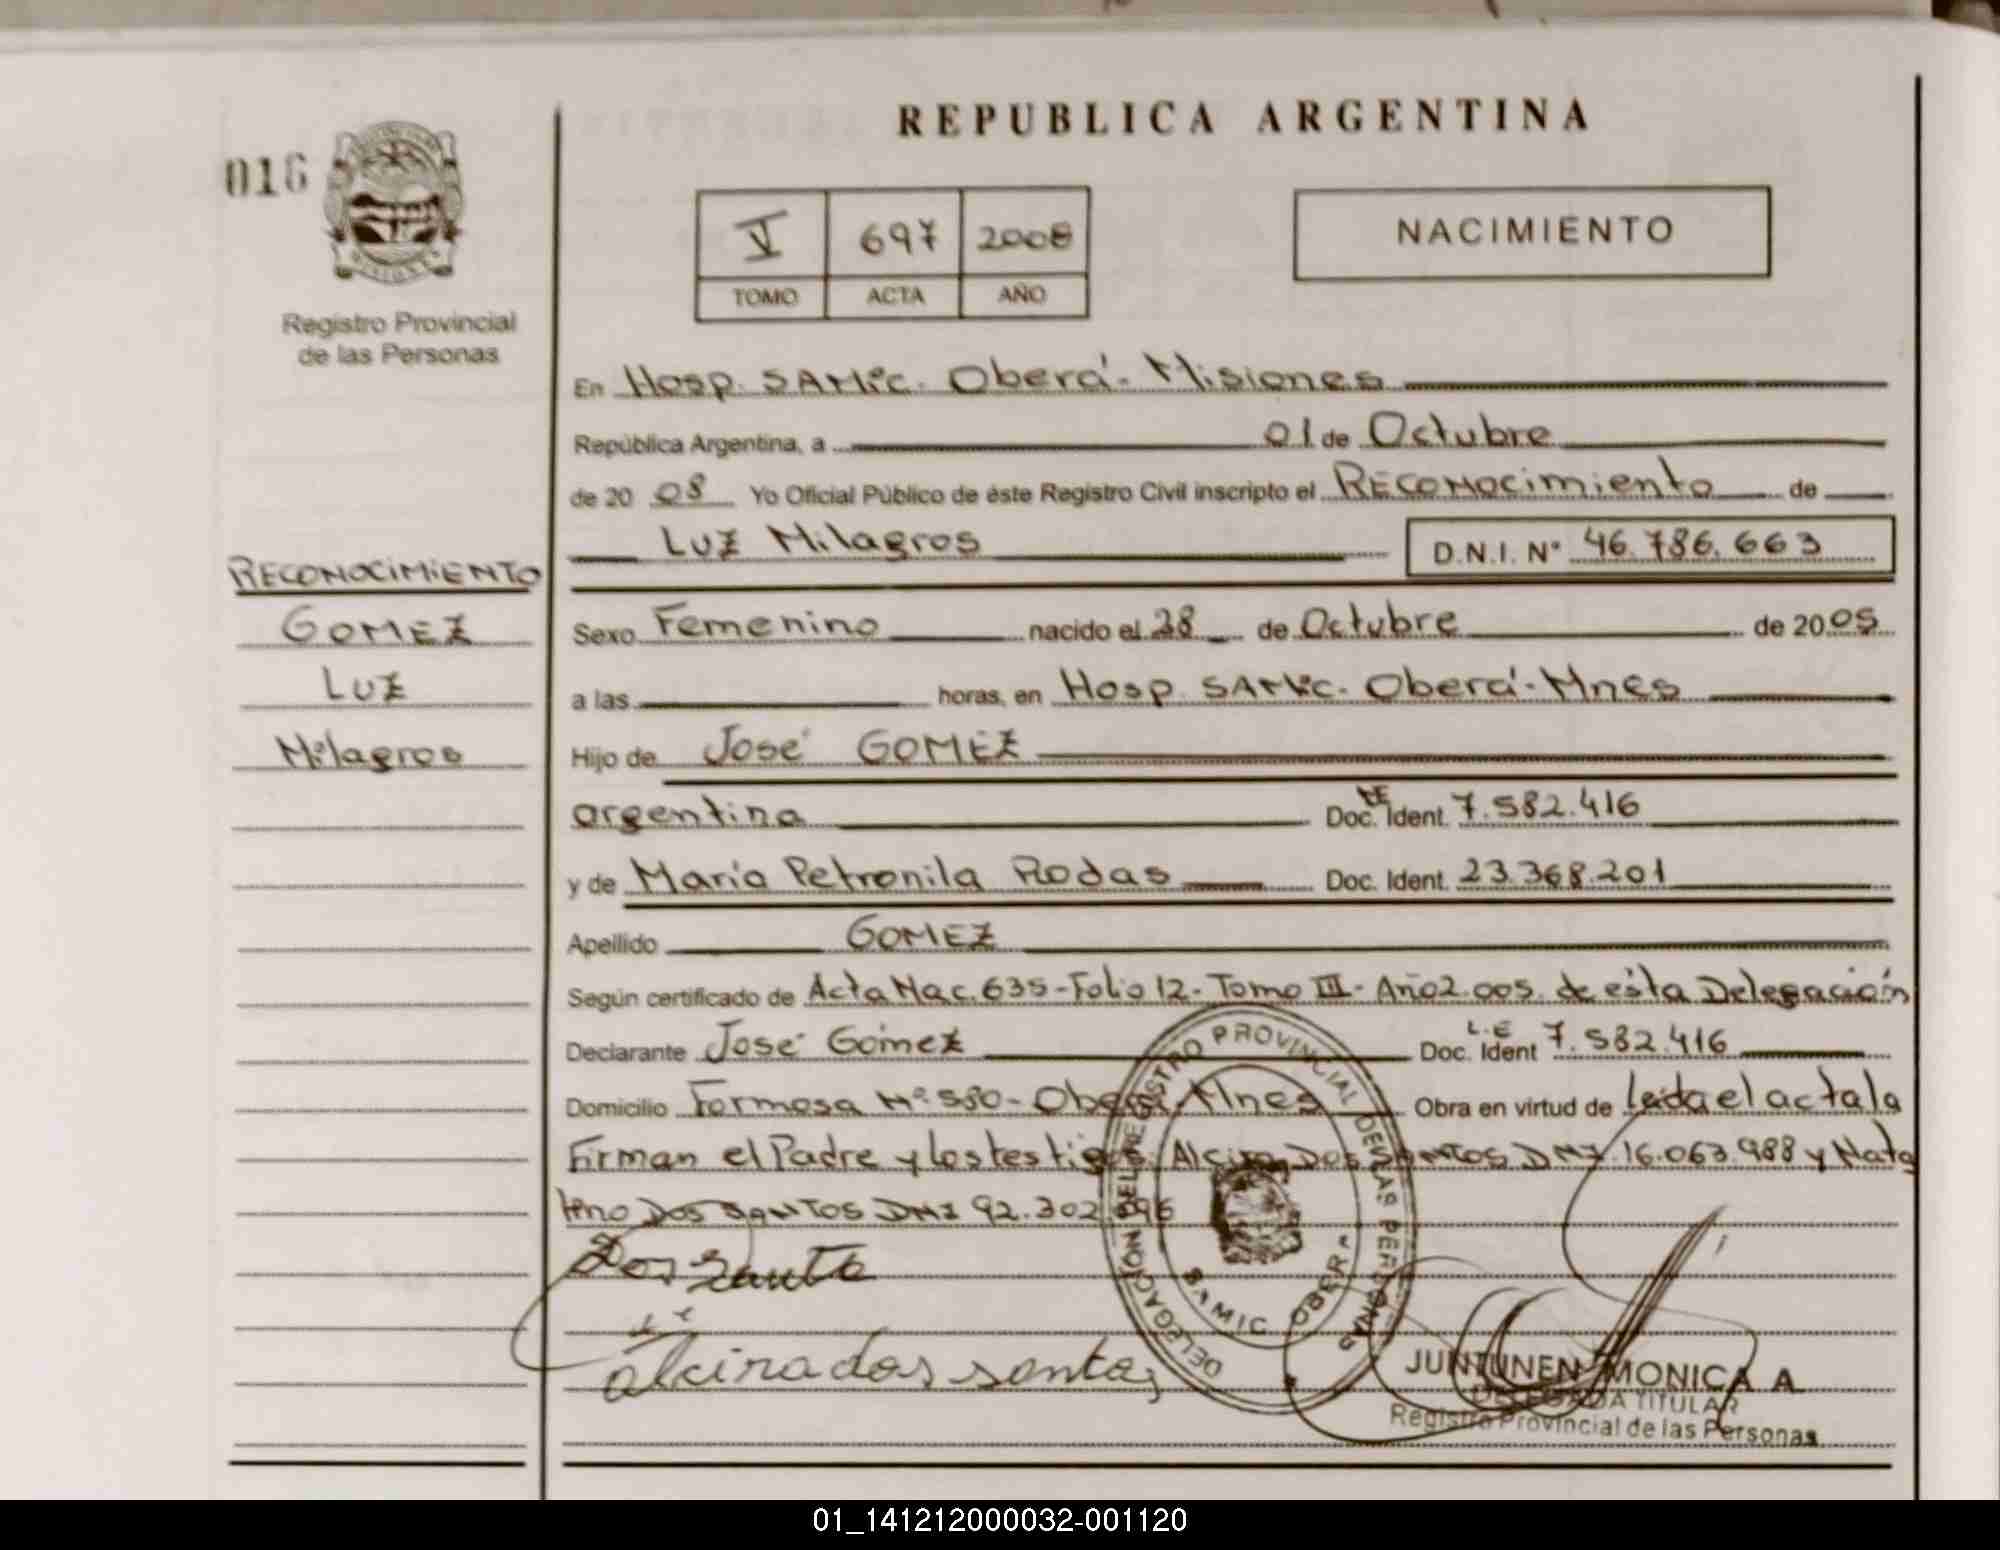 REPUBLICA ARGENTINA
016
V 697 2008
TOMO ACTA AÑO
NACIMIENTO
Registro Provincial
de las Personas
En Hosp. SAMic. Oberá - Misiones
República Argentina, a 01 de Octubre
de 20 08 Yo Oficial Público de éste Registro Civil inscripto el RECONOCimiento de
Luz Milagros D.N.I. N° 46.786.663
RECONOCIMIENTO
GOMEZ
Luz
Milagros
Sexo Femenino nacido el 28 de Octubre de 20 05
a las horas, en Hosp. SAMic. Oberá - Mnes
Hijo de José GOMEZ
argentina Doc. Ident. LE 7.582.416
y de María Petronila Rodas Doc. Ident. 23.368.201
Apellido GOMEZ
Según certificado de Acta Nac. 635 - Folio 12 - Tomo III - Año 2.005. de ésta Delegación
Declarante José Gómez Doc. Ident L.E 7.582.416
Domicilio Formosa Nº 580 - Oberá, Mnes Obra en virtud de Leida el acta la
Firman el Padre y los testigos. Alcira Dos SANTOS DNI 16.063.988 y Nata
lino Dos SANTOS DNI 92.302.096
Dos Santo
alcira dos santos
DELEGACION DEL REGISTRO PROVINCIAL DE LAS PERSONAS
SAMIC OBERA
JUNTUNEN MONICA A.
DELEGADA TITULAR
Registro Provincial de las Personas
01_141212000032-001120